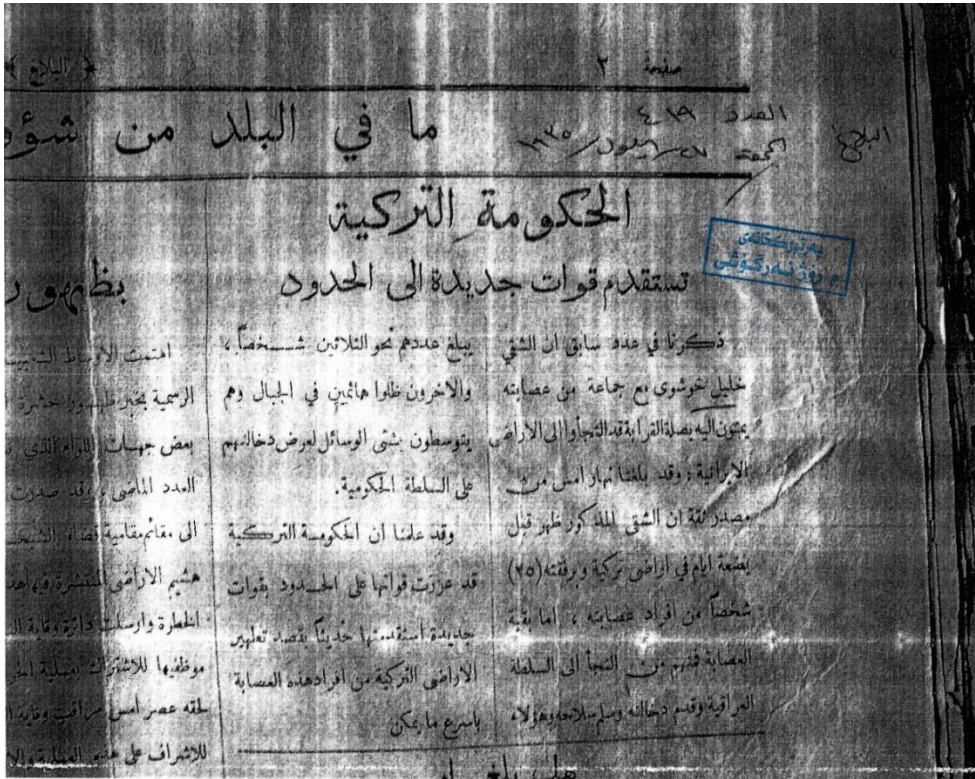 صفحة ٢
﴿ البلاغ ﴾
البلاغ
العدد ٤١٩
الجمعة ٢٧/ايلول/١٩٣٥
ما في البلد من شؤو
الحكومة التركية
تستقدم قوات جديدة الى الحدود
ذكرنا في عدد سابق ان الشقي
خليل خوشوى مع جماعة من عصابته
يمتون اليه بصلة القرابة قد التجأوا الى الاراضي
الايرانية ; وقد بلغنا نهار امس من
مصدر ثقة ان الشقي المذكور ظهر قبل
بضعة ايام في اراضي تركية وبرفقته (٢٥)
شخصاً من افراد عصابته ، اما بقية
العصابة فمنهم من التجأ الى السلطة
العراقية وقدم دخالته وسلم سلاحه وهؤلاء
يبلغ عددهم نحو الثلاثين شخصاً ،
والاخرون ظلوا هائمين في الجبال وهم
يتوسطون بشتى الوسائل لعرض دخالتهم
على السلطة الحكومية.
وقد علمنا ان الحكومة التركية
قد عززت قواتها على الحدود بقوات
جديدة استقدمتها حديثاً بقصد تطهير
الاراضي التركية من افراد هذه العصابة
باسرع ما يمكن
بظهور
اهتمت الاوساط
الرسمية بخبر ظهور حشرة
بعض جهات اللواء الذي
العدد الماضي ، وقد صدرت
الى مقائممقامية قضاء
هشيم الاراضي المنتشرة فيها هذ
الخطرة وارسلت دائرة وقاية
موظفيها للاشتراك بعملية
لحقه عصر امس مراقب وقاية
للاشراف على هذه